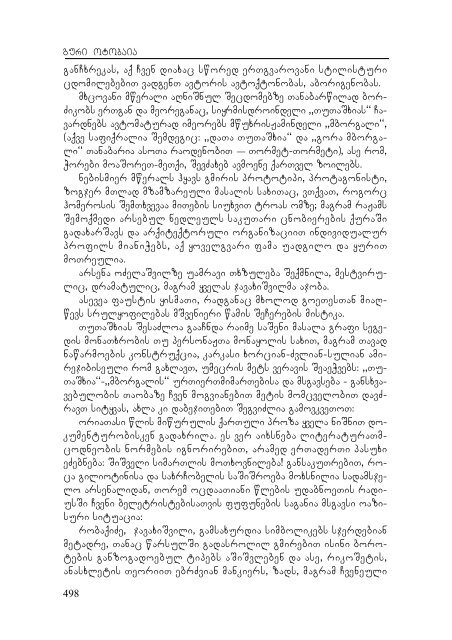 გური ოტობაია
განჩხრეკას, აქ ჩვენ დიახაც სწორედ ერთგვაროვანი სტილისტური
ცდომილებებით ვადგენთ ავტორის ავტოქტონობას, აბორიგენობას.
მხცოვანი მწერალი აღნიშნულ შეცდომებზე თანაბარწილად ბორ-
ძიკობს ერთგან და მეორეგანაც, სიყრმისდროინდელი „თუთაშხიას“ ჩა-
ვარდნებს ავტომატურად იმეორებს მწუხრისჟამინდელი „მბორგალი“,
(აქვე საფიქრალია შემდეგიც: „დათა თუთაშხია“ და „გორა მბორგა-
ლი“ თანაბარია ასოთა რაოდენობით — თორმეტ-თორმეტი), ასე რომ,
ჭორები მოაშორეთ-მეთქი, შევძახებ ავმოენე ქართველ ზოილებს.
ნებისმიერ მწერალს ჰყავს გმირის პროტოტიპი, პროტაგონისტი,
ზოგჯერ მთლად მზამზარეული მასალის სახითაც, ვთქვათ, როგორც
ჰომეროსის შემთხვევაა მითების სიუხვით ტროას ომზე; მაგრამ რაჟამს
შემოქმედი არსებულ ნედლეულს საკუთარი ცნობიერების ქურაში
გადახარშავს და არქიტექტორული ორგანიზაციით ინდივიდუალურ
პროფილს მიანიჭებს, აქ ყოველგვარი ფამა უადგილო და ყურით
მოთრეულია.
არსენა ოძელაშვილზე უამრავი თხზულება შექმნილა, მესტვირუ-
ლიც, დრამატულიც, მაგრამ ყველას ჯავახიშვილმა აჯობა.
ასევეა ფაუსტის ყისმათი, რადგანაც მხოლოდ გოეთესთან მიაღ-
წევს სრულყოფილებას მშვენიერი წამის შეჩერების მისტიკა.
თუთაშხიას შესაძლოა გააჩნდა რაიმე საშენი მასალა გრაფი სეგე-
დის მონათხრობის თუ პერსონაჟთა მონაყოლის სახით, მაგრამ თავად
ნაწარმოების კონსტრუქცია, კარკასი ხორციან-ძვლიან-სულიან ამი-
რეჯიბისეული რომ გახლავთ, უმეცრის მეტს ვერავის შეაეჭვებს: „თუ-
თაშხია“-„მბორგალის“ ურთიერთმიმართებისა და მსგავსება - განსხვა-
ვებულობის თაობაზე ჩვენ მოგვიანებით მეტის მომცველობით დავძ-
რავთ სიტყვას, ახლა კი დაბეჯითებით შეგვიძლია გამოვკვეთოთ:
ორიათასი წლის მიწურულის ქართული პროზა ყველა ნიშნით დო-
კუმენტურობისკენ გადახრილა. ეს ვერ აიხსნება ლიტერატურათმ-
ცოდნეობის ნორმების იგნორირებით, არამედ ერთადერთი პასუხი
ეძებნება: შიშველი სიმართლის მოთხოვნილება! განსაკუთრებით, რო-
ცა გილიოტინისა და სახრჩობელის საშიშროება მოხსნილია სადამსჯე-
ლო არსენალიდან, თორემ ოცდაათიანი წლების უდაბნოეთის რადი-
უსში ჩვენი ბელეტრისტებისათვის ფუფუნების საგანია მსგავსი ოაზი-
სური სიტუაცია:
რობაქიძე, ჯავახიშვილი, გამსახურდია სიმბოლიკებს სჯერდებიან
მეტადრე, თანაც წარსულში გადასროლილ გმირებით ისინი ბორო-
ტების განზოგადოებულ ტიპებს აშიშვლებენ და ასე, რიკოშეტის,
ანასხლეტის თეორიით ებრძვიან მანკიერს, ზადს, მაგრამ ჩვენეული
498